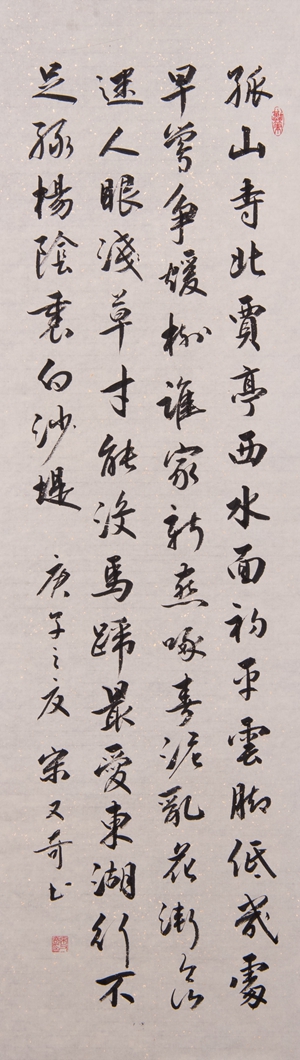 孤山寺北賈亭西水面初平雲脚低幾處
早鶯爭煖樹誰家新燕啄春泥亂花漸欲
迷人眼淺草才能沒馬蹄最愛東湖行不
足綠楊陰裏白沙堤 庚子之夏 宋又奇书